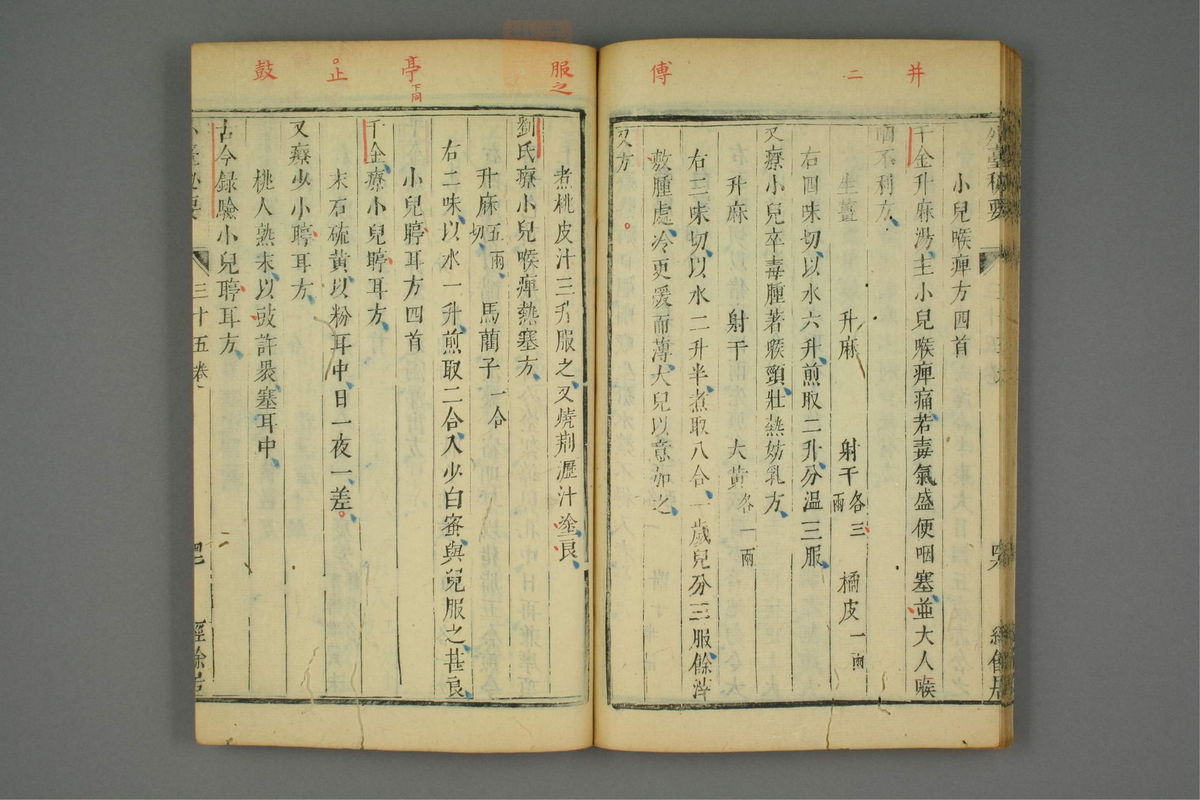 井
二
傅
外臺秘要
小兒喉痺方四首
千金升麻湯主小兒喉痺痛若毒氣盛便咽塞並大人喉
咽不利方
生薑 升麻 射干各三兩 橘皮一兩
右四味切以水六升煎取二升分溫三服
又療小兒卒毒腫著喉頸壯熱妨乳方
升麻 射干 大黃各一兩
右三味切以水二升半煮取八合一歲兒分三服餘滓
敷腫處冷更煖而薄大兒以意加之
又方
服之
亭下同
止
鼓
煮桃皮汁三升服之又燒荆瀝汁塗良
劉氏療小兒喉痺熱塞方
升麻五兩切 馬藺子一合
右二味以水一升煎取二合入少白蜜與兒服之甚良
小兒聤耳方四首
千金療小兒聤耳方
末石硫黃以粉耳中日一夜一差
又療少小聤耳方
桃人熟末以豉許褁塞耳中
古今録驗小兒聤耳方
三十五卷